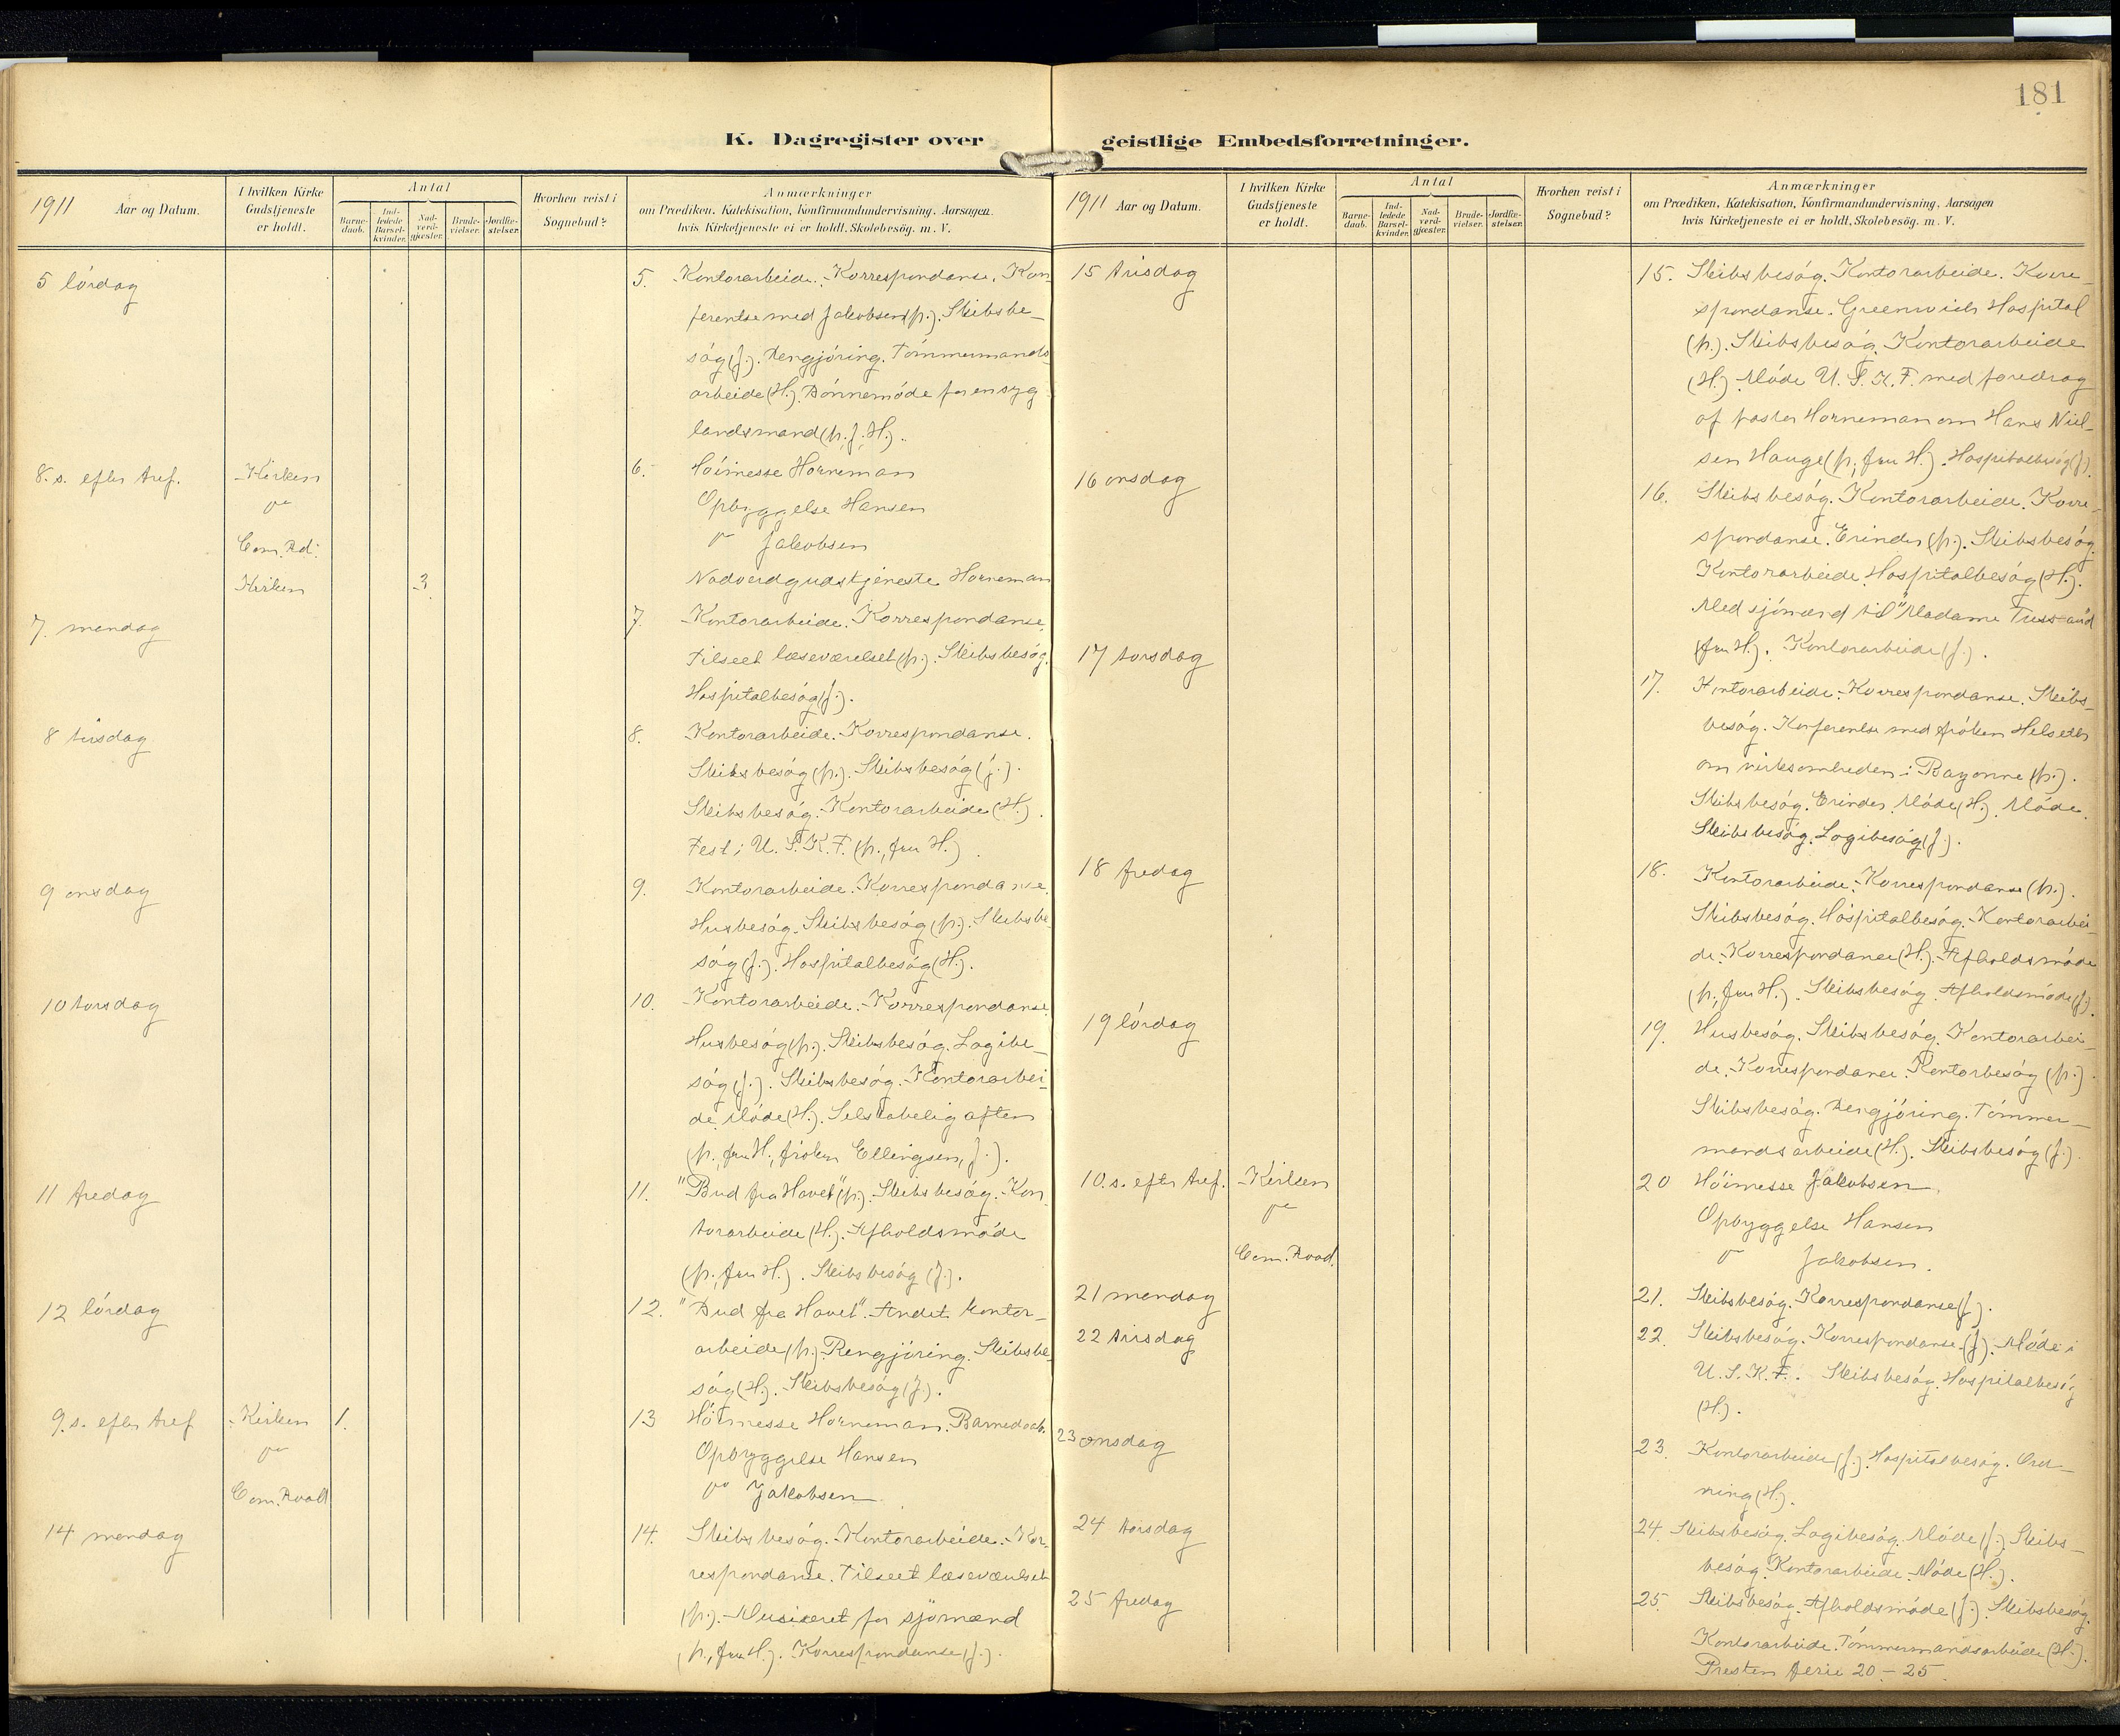 181
K. Dagregister over geistlige Embedsforretninger.
1911
Aar og Datum.
I hvilken Kirke
Gudstjeneste
er holdt.
Antal
Barne-
daab.
Ind-
ledede
Barsel-
kvinder.
Nad-
verd-
gjæster.
Brude-
vielser.
Jordfæ-
stelser.
Hvorhen reist i
Sognebud?
Anmærkninger
om Prædiken, Katekisation, Konfirmandundervisning. Aarsagen
hvis Kirketjeneste ei er holdt. Skolebesög. m. V.
5 lördag
5. Kontorarbeide. Korrespondanse. Kon-
ferentse med Jakobsen (p.). Skibsbe-
sög (J.). Rengjöring. Tömmermands-
arbeide (H.). Bönnemöde for en syg
landsmand (p. J. H.).
8. s. efter tref. Kirken
6. Höimesse Horneman
Opbyggelse Hansen
Com. Rd.
" Jakobsen
Kirken 3.
Nadverdgudstjeneste Horneman
7. mandag
7. Kontorarbeide. Korrespondanse.
Tilseet læseværelset (p.). Skibsbesög.
Hospitalbesög (J.).
8 tirsdag
8. Kontorarbeide. Korrespondanse.
Skibsbesög (p.). Skibsbesög (J.).
Skibsbesög. Kontorarbeide (H.).
Fest i U. S. K. F. (p., fru H.).
9 onsdag
9. Kontorarbeide. Korrespondanse.
Husbesög. Skibsbesög (p.). Skibsbe-
sög (J.). Hospitalbesög (H.).
10 torsdag
10. Kontorarbeide. Korrespondanse.
Husbesög (p.). Skibsbesög. Logibe-
sög (J.). Skibsbesög. Kontorarbei-
de. Möde (H.). Selskabelig aften
(p., fru H., fröken Ellingsen, J.).
11 fredag
11. "Bud fra Havet" (p.). Skibsbesög. Kon-
torarbeide (H.). Afholdsmöde
(p., fru H.). Skibsbesög (J.).
12 lördag
12. "Bud fra Havet". Andet kontor-
arbeide (p.). Rengjöring. Skibsbe-
sög (H.). Skibsbesög (J.).
9. s. efter tref Kirken 1.
13 Höimesse Horneman. Barnedaab.
Opbyggelse Hansen
Com. Road
" Jakobsen
14 mandag
14. Skibsbesög. Kontorarbeide. Kor-
respondanse. Tilseet læseværelset
(p.). Musiceret for sjömænd
(p., fru H.). Korrespondanse (J.).
1911
Aar og Datum.
I hvilken Kirke
Gudstjeneste
er holdt.
Antal
Barne-
daab.
Ind-
ledede
Barsel-
kvinder.
Nad-
verd-
gjæster.
Brude-
vielser.
Jordfæ-
stelser.
Hvorhen reist i
Sognebud?
Anmærkninger
om Prædiken, Katekisation, Konfirmandundervisning. Aarsagen
hvis Kirketjeneste ei er holdt, Skolebesög. m. V.
15 tirsdag
15. Skibsbesög. Kontorarbeide. Korre-
spondanse. Greenwich Hospital
(p.). Skibsbesög. Kontorarbeide
(H.). Möde U. S. K. F. med foredrag
af pastor Horneman om Hans Niel-
sen Hauge (p., fru H.). Hospitalbesög (J.).
16 onsdag
16. Skibsbesög. Kontorarbeide. Korre-
spondanse. Erinder (p.). Skibsbesög.
Kontorarbeide. Hospitalbesög (H.).
Med sjömænd til "Madame Tussaud
(fru H.). Kontorarbeide (J.).
17 torsdag
17. Kontorarbeide. Korrespondanse. Skibs-
besög. Konferentse med fröken Helseth
om virksomheden i Bayonne (p.).
Skibsbesög. Erinder. Möde (H.). Möde.
Skibsbesög. Logibesög (J.).
18 fredag
18. Kontorarbeide. Korrespondanse (p.).
Skibsbesög. Hospitalbesög. Kontorarbei-
de. Korrespondance (H.). Afholdsmöde
(p., fru H.). Skibsbesög. Afholdsmöde (J.).
19 lördag
19. Husbesög. Skibsbesög. Kontorarbei-
de. Korrespondance. Kontorbesög (p.)
Skibsbesög. Rengjöring. Tömmer-
mandsarbeide (H.). Skibsbesög (J.).
10. s. efter tref. Kirken
20 Höimesse Jakobsen
Opbyggelse Hansen
Com. Road.
" Jakobsen.
21 mandag
21. Skibsbesög. Korrespondanse (J.).
22 tirsdag
22. Skibsbesög. Korrespondanse (J.). Möde i
U. S. K. F. Skibsbesög. Hospitalbesög
(H.).
23 onsdag
23. Kontorarbeide (J.). Hospitalbesög. Ord-
ning (H.).
24 torsdag
24. Skibsbesög. Logibesög. Möde (J.). Skibs-
besög. Kontorarbeide. Möde (H.).
25 fredag
25. Skibsbesög. Afholdsmöde (J.). Skibsbesög.
Kontorarbeide. Tömmermandsarbeide (H.).
Presten ferie 20-25.